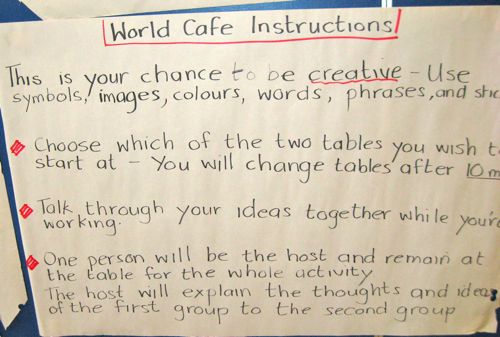 World Cafe Instructions
This is your chance to be creative - Use
symbols, images, colours, words, phrases, and
Choose which of the two tables you wish
start at - You will change tables after 10
Talk through your ideas together while
working.
One person will be the host and remain at
the table for the whole activity
The host will explain the thoughts and ideas
of the first group to the second group